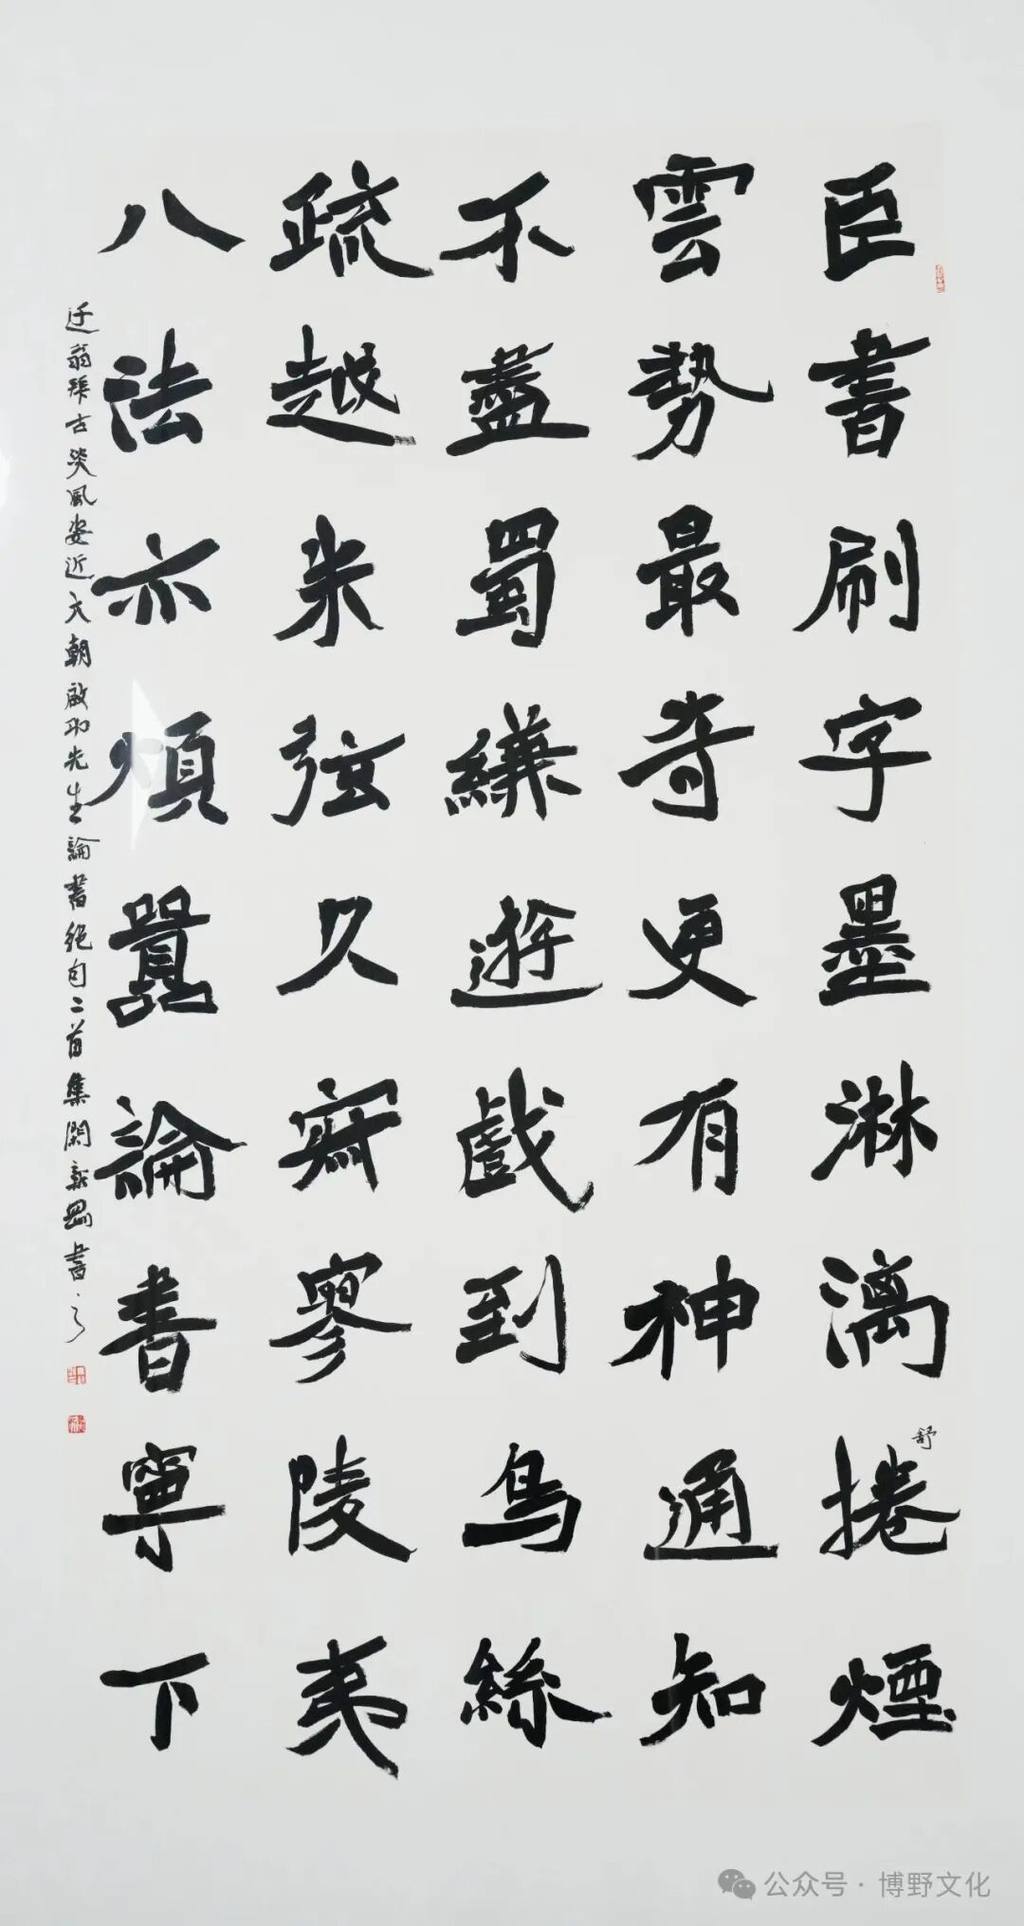 臣書刷字墨淋漓舒捲煙
雲勢最奇更有神通知
不盡蜀縑遊戲到烏絲
疏越朱弦久寂寥陵夷
八法亦煩囂論書寧下
迂翁拜古淡風姿近六朝啟功先生論書絕句二首集書之
公众号 · 博野文化